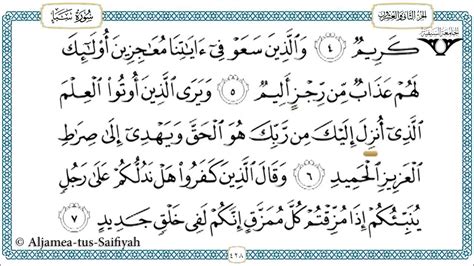 سُورَةُ سَبَإٍ
الجزء الثاني والعشرون
كَرِيمٌ ٤ وَالَّذِينَ سَعَوْ فِىٓ ءَايَٰتِنَا مُعَٰجِزِينَ أُوْلَٰٓئِكَ
لَهُمْ عَذَابٌ مِّن رِّجْزٍ أَلِيمٌ ٥ وَيَرَى الَّذِينَ أُوتُوا۟ الْعِلْمَ
الَّذِىٓ أُنزِلَ إِلَيْكَ مِن رَّبِّكَ هُوَ الْحَقَّ وَيَهْدِىٓ إِلَىٰ صِرَٰطِ
الْعَزِيزِ الْحَمِيدِ ٦ وَقَالَ الَّذِينَ كَفَرُوا۟ هَلْ نَدُلُّكُمْ عَلَىٰ رَجُلٍ
يُنَبِّئُكُمْ إِذَا مُزِّقْتُمْ كُلَّ مُمَزَّقٍ إِنَّكُمْ لَفِى خَلْقٍ جَدِيدٍ ٧
© Aljamea-tus-Saifiyah
٤٢٨